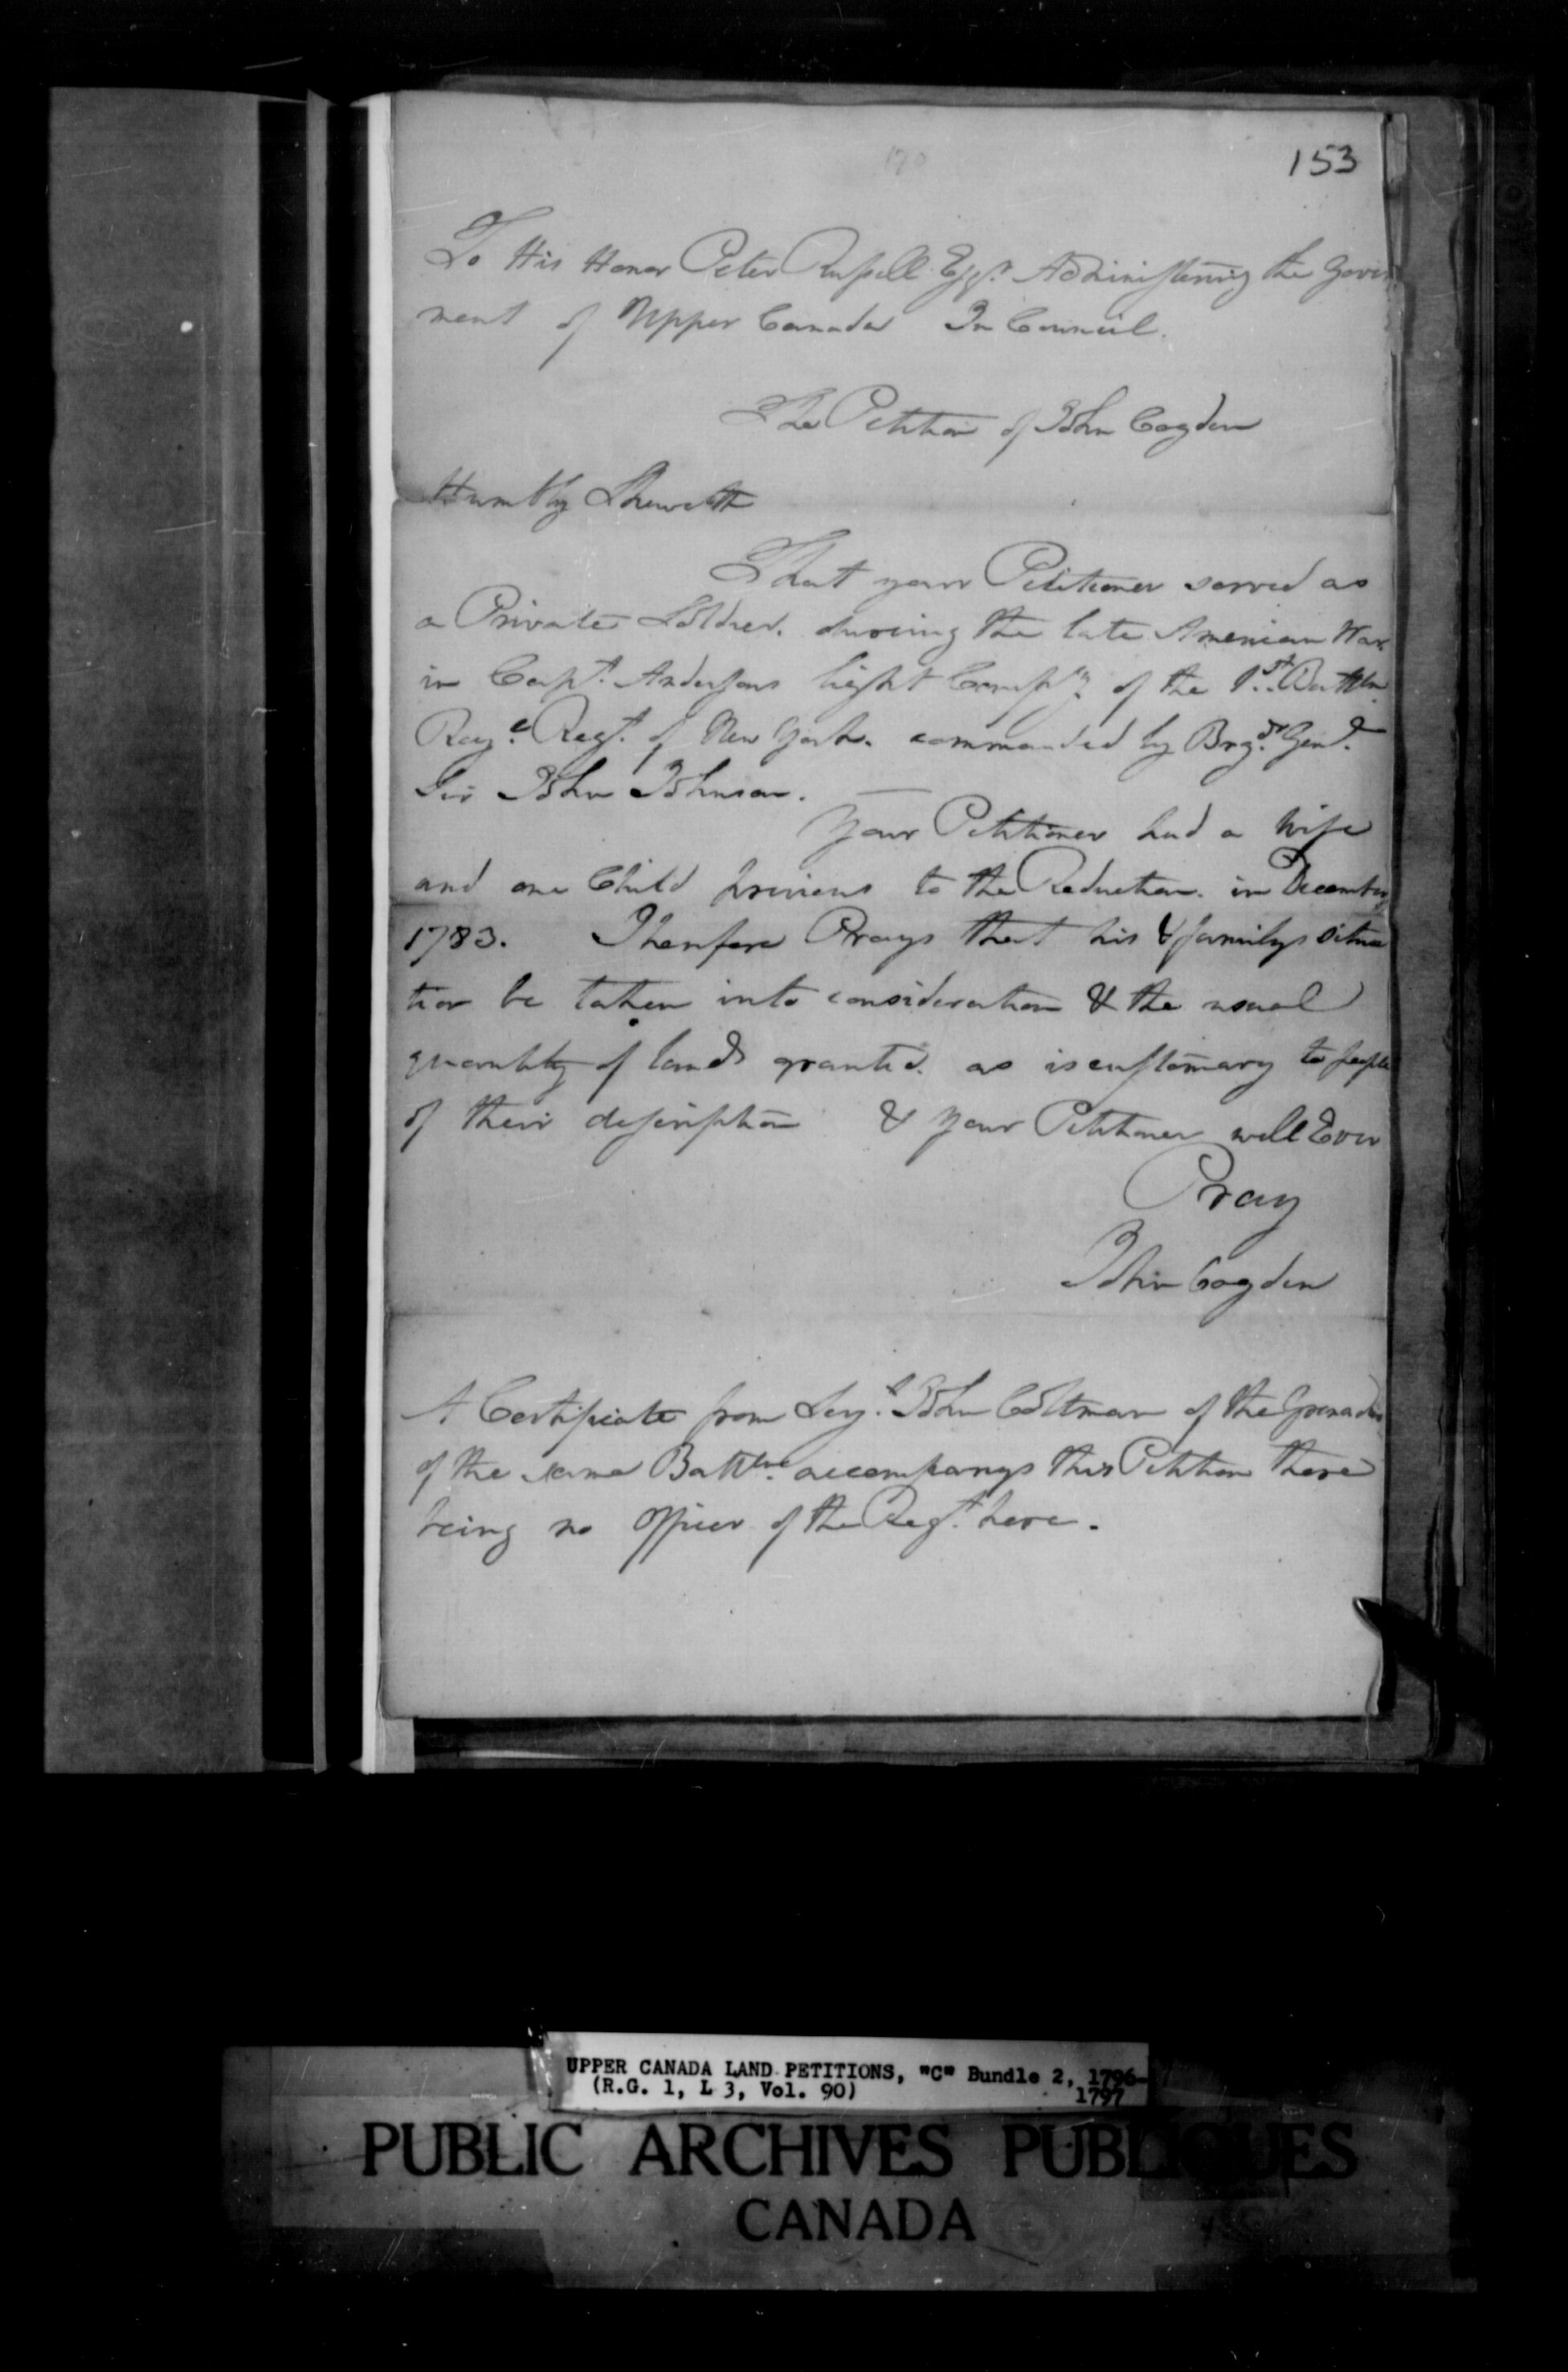 153
To His Honor Peter Russell Esqr. Administering the Govern
ment of Upper Canada In Council.
The Petition of John Cogden
Humbly Sheweth
That your Petitioner served as
a Private Soldier. during the late American War
in Capt. Andersons light Compy. of the 1st. Battln.
Roy.l Regt. of New York. commanded by Brg.dr Genl.
Sir John Johnson.
Your Petitioner had a Wife
and one Child previous to the Reduction in December
1783. Therefore Prays that his & familys situa
tion be taken into consideration & the usual
quantity of lands granted. as is customary to people
of their description & your Petitioner will Ever
Pray
John Cogden
A Certificate from Serj.t John Coltman of the Grenadrs
of the same Battln. accompanys this Petition there
being no Officer of the Regt. here.
UPPER CANADA LAND PETITIONS, "C" Bundle 2, 1796-
(R.G. 1, L 3, Vol. 90) 1797
PUBLIC ARCHIVES PUBLIQUES
CANADA